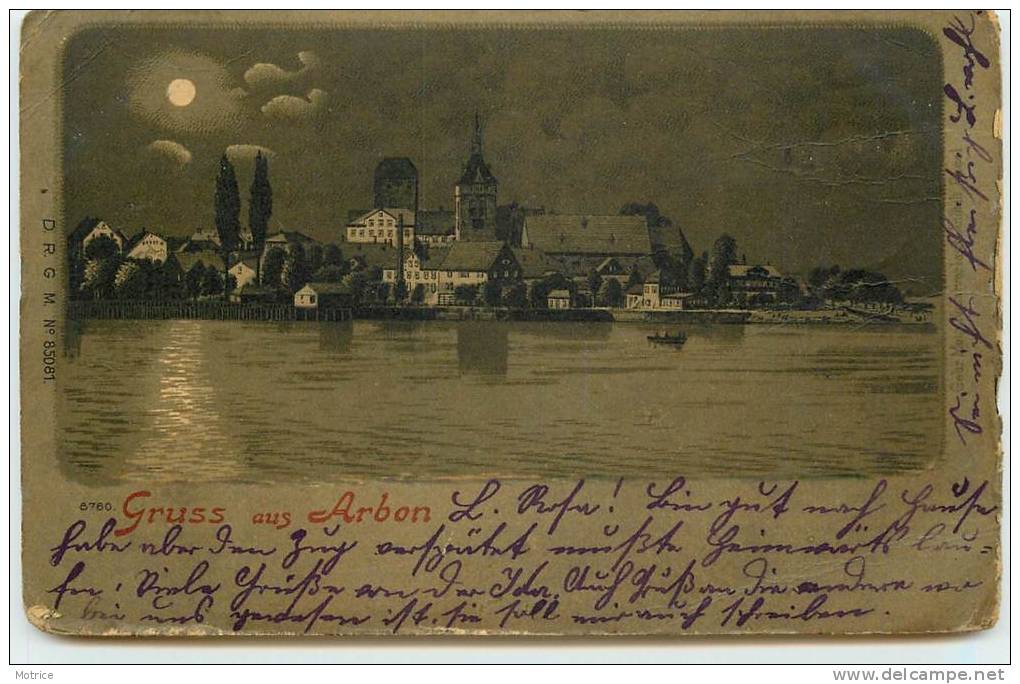 D. R. G. M. Nº 85081.
6760. Gruss aus Arbon L. Rosa! Bin gut nach Hause
habe aber den Zug verspätet mußte heimwärts lau-
fen, Viele Grüße von der Ida. Auch Gruß an die andere wo
bei uns gewesen ist. sie soll mir auch schreiben.
Motrice
www.delcampe.net